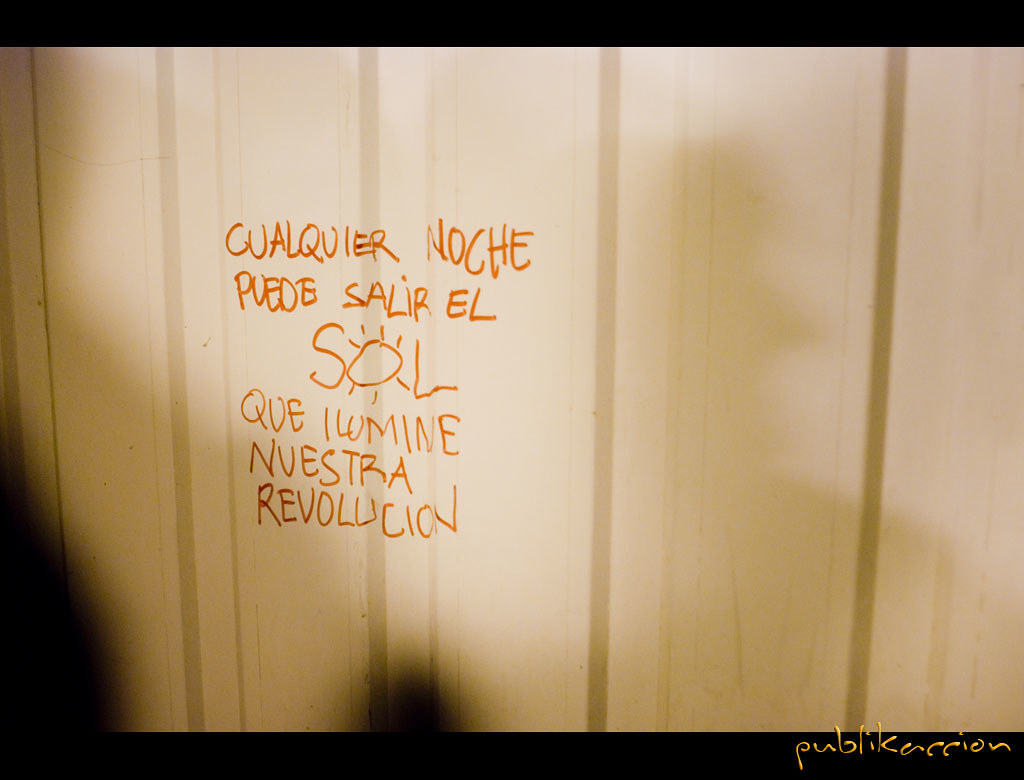 CUALQUIER NOCHE
PUEDE SALIR EL
SOL
QUE ILUMINE
NUESTRA
REVOLUCION
publikaccion